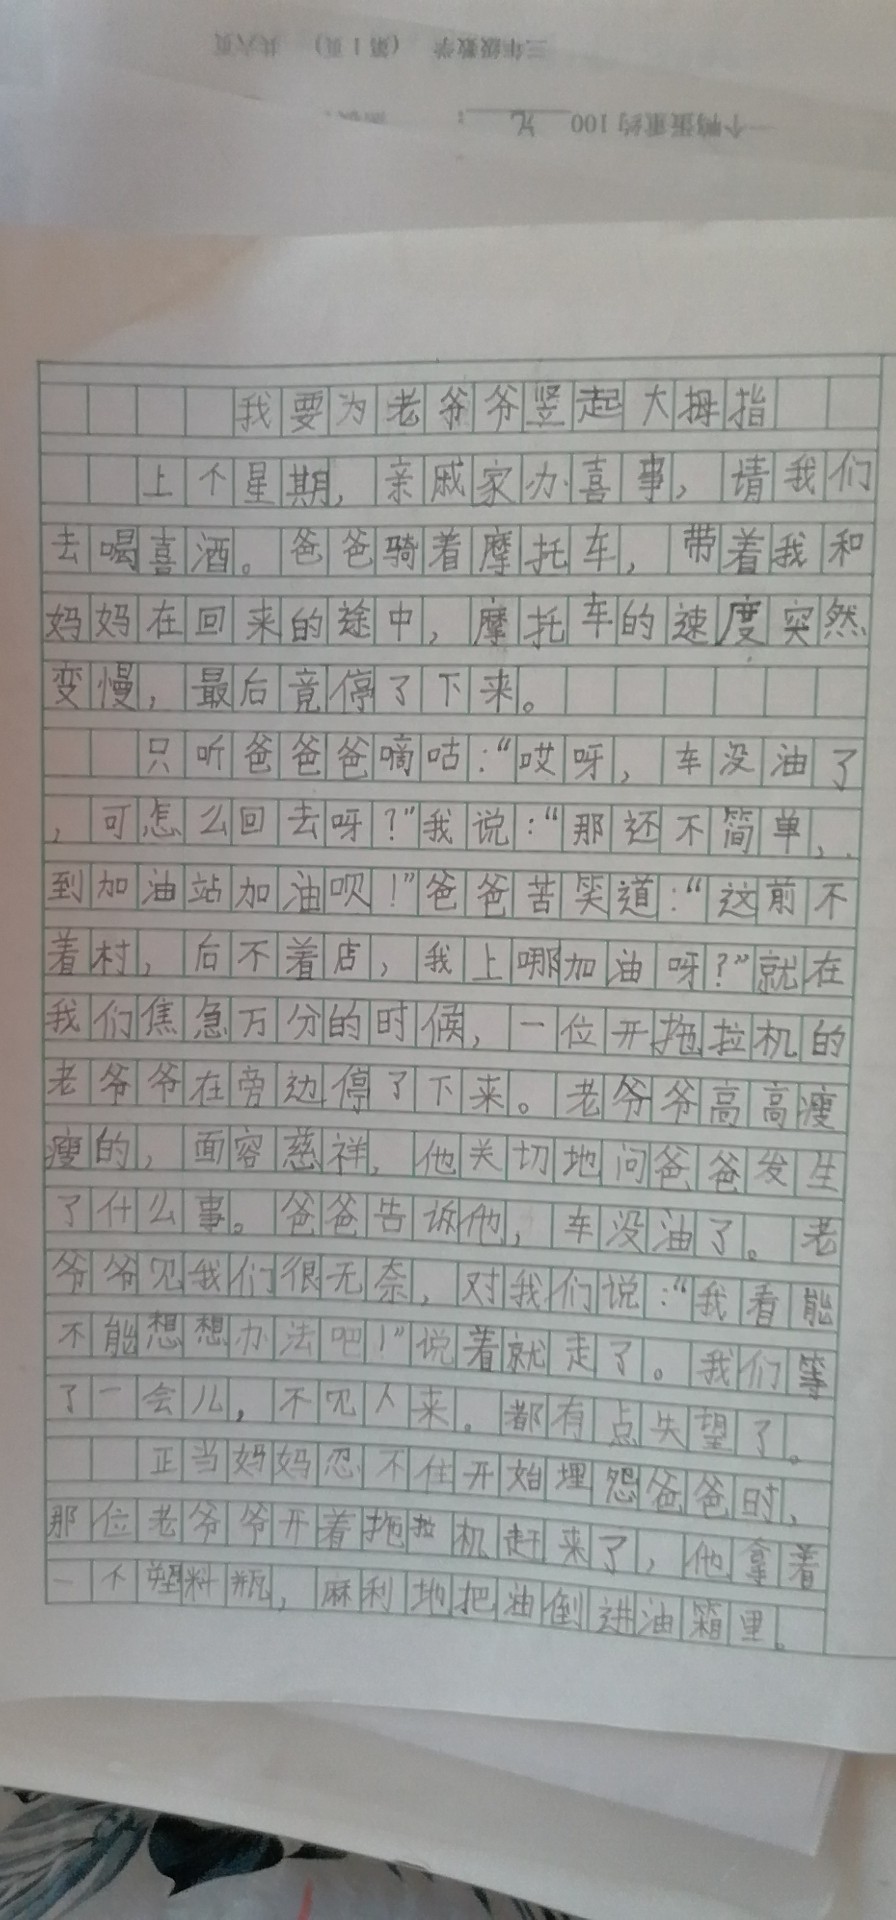 三年级数学 (第1页) 共六页
一个鸭蛋重约100
我要为老爷爷竖起大拇指
上个星期,亲戚家办喜事,请我们
去喝喜酒。爸爸骑着摩托车,带着我和
妈妈在回来的途中,摩托车的速度突然
变慢,最后竟停了下来。
只听爸爸爸嘀咕:“哎呀,车没油了
,可怎么回去呀?”我说:“那还不简单,
到加油站加油呗!”爸爸苦笑道:“这前不
着村,后不着店,我上哪加油呀?”就在
我们焦急万分的时候,一位开拖拉机的
老爷爷在旁边停了下来。老爷爷高高瘦
瘦的,面容慈祥,他关切地问爸爸发生
了什么事。爸爸告诉他,车没油了。老
爷爷见我们很无奈,对我们说:“我看能
不能想想办法吧!”说着就走了。我们等
了一会儿,不见人来。都有点失望了。
正当妈妈忍不住开始埋怨爸爸时,
那位老爷爷开着拖拉机赶来了,他拿着
一个塑料瓶,麻利地把油倒进油箱里。